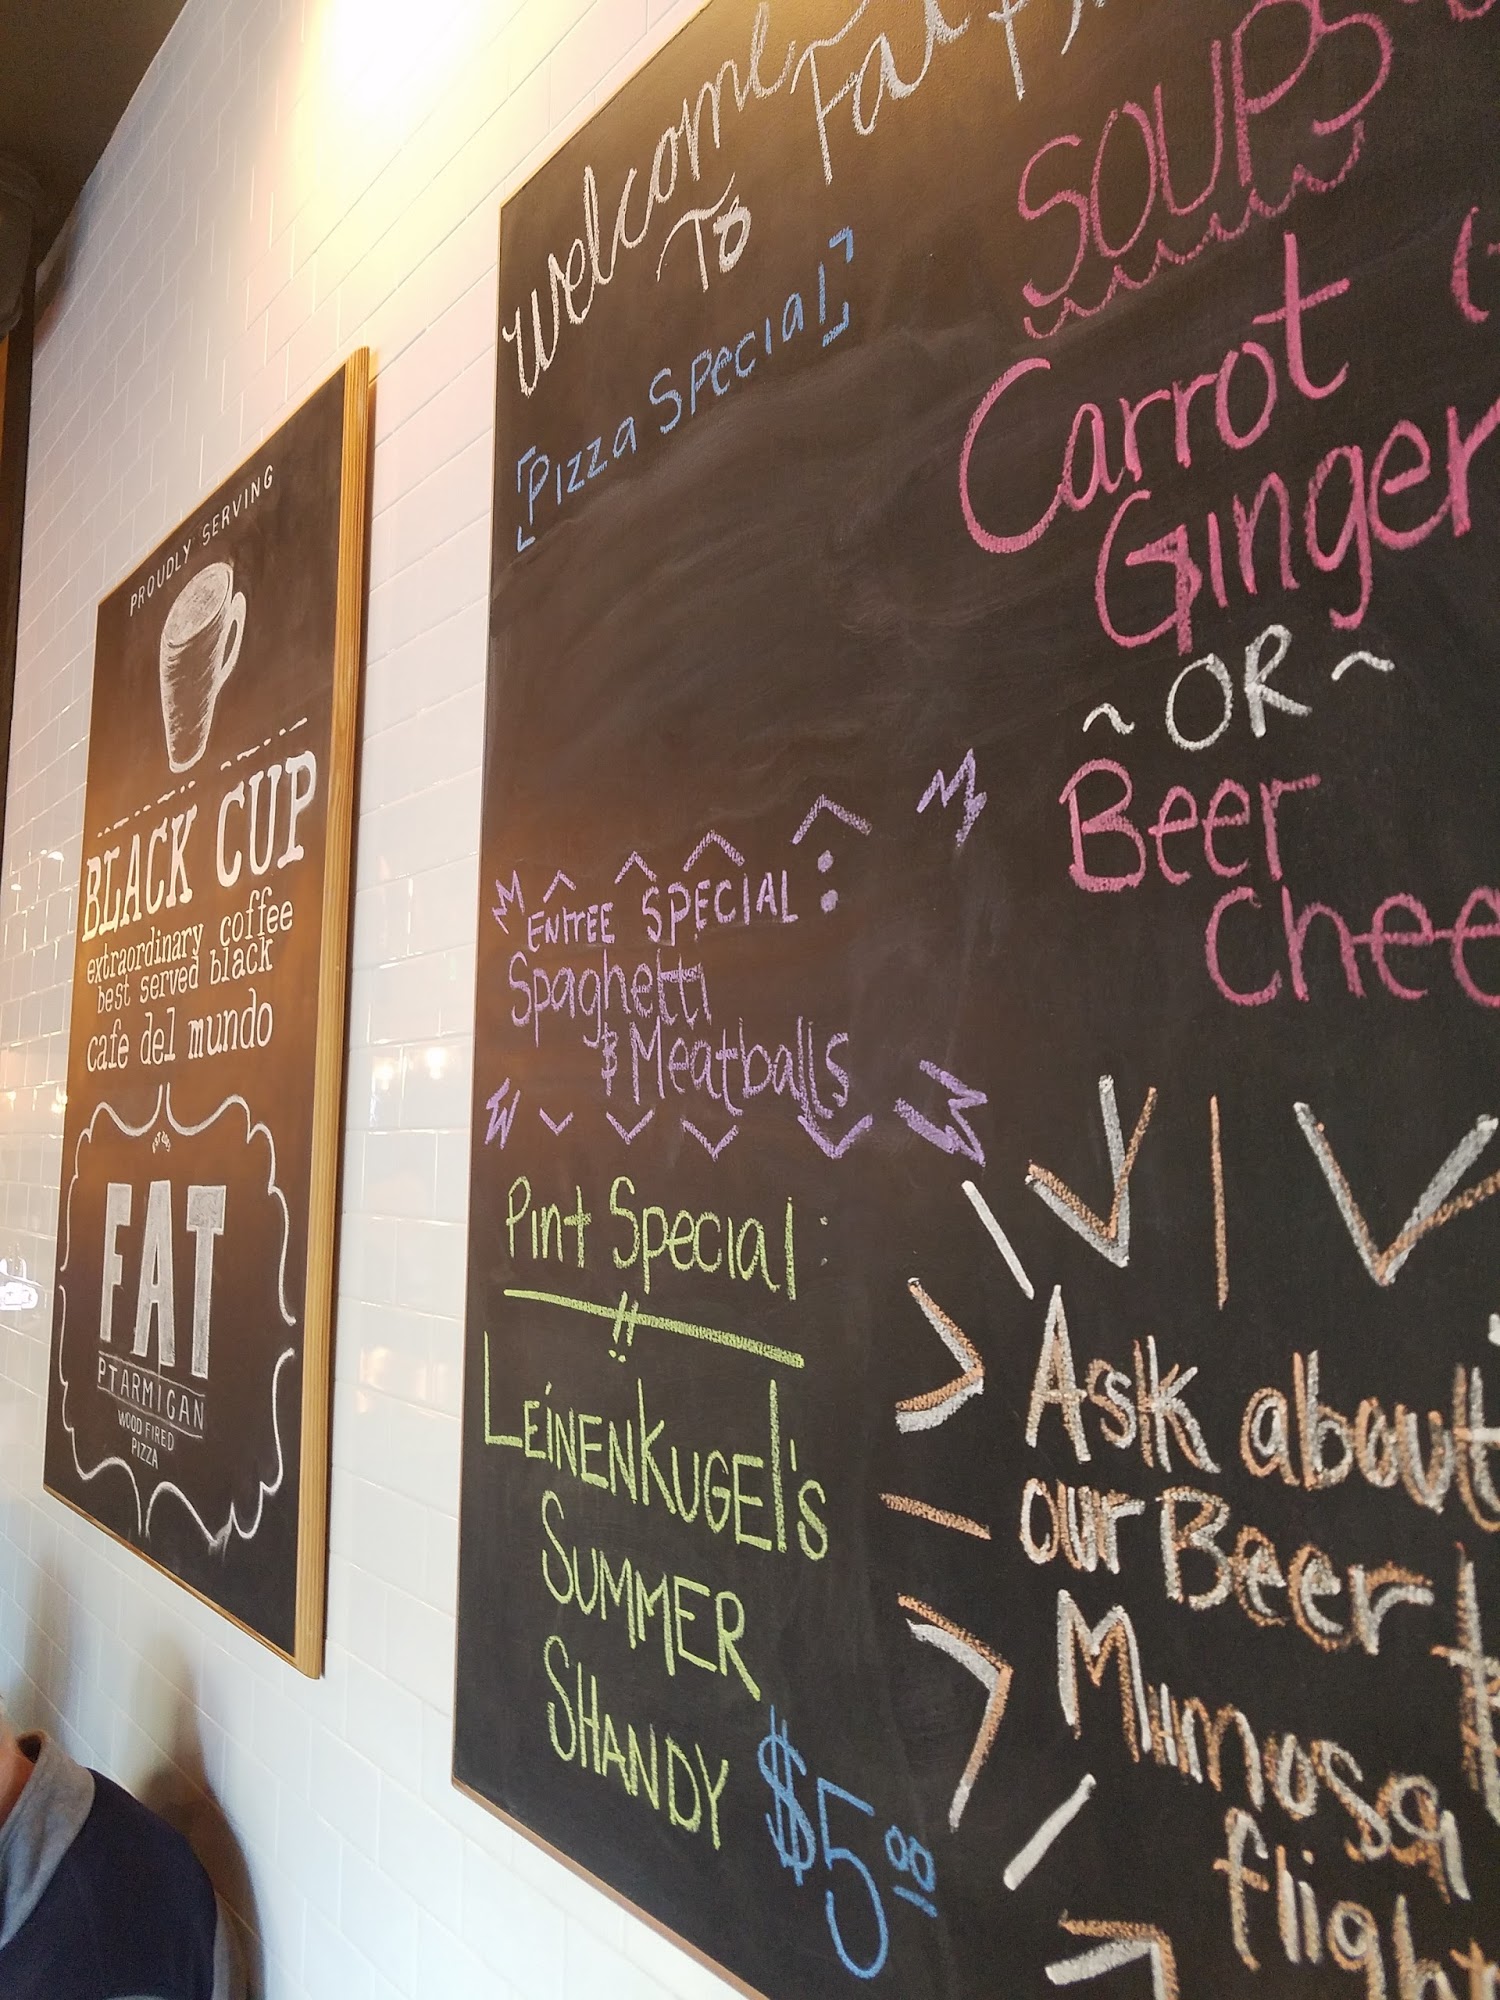 PROUDLY SERVING
BLACK CUP
extraordinary coffee
best served black
cafe del mundo
FAT
PTARMIGAN
WOOD FIRED
PIZZA
Welcome
To
Fat
[Pizza Special]
ENTREE SPECIAL:
Spaghetti
& Meatballs
Pint Special:
LEINENKUGEL'S
SUMMER
SHANDY
$5.00
SOUPS
Carrot
Ginger
~ OR ~
Beer
Chee
Ask about
our Beer
Mimosa
flight